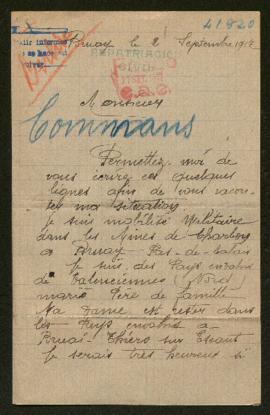 41820
Bruay le 2 Septembre 191
REPATRIACIO
CIVIL
Monsieur
Commans
Permettez moi de
vous écrire ces quelques
lignes afin de vous racon-
ter ma situation
Je suis mobilisé Militaire
dans les Mines de Charbon
a Bruay Pas-de-Calais
Je suis des Pays envahis
de Valenciennes (Nord)
marié Père de famille
Ma Dame est restée dans
les Pays envahis a
Thiers sur Escaut
Je serais très heureux si